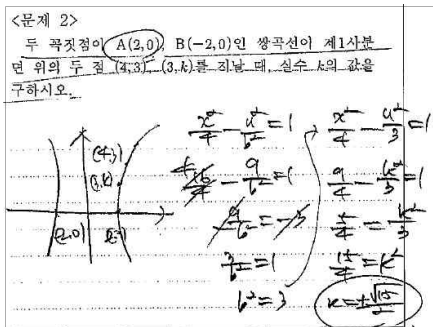 <문제 2>
두 꼭짓점이 A(2,0), B(-2,0)인 쌍곡선이 제1사분
면 위의 두 점 (4,3), (3,k)를 지날 때, 실수 k의 값을
구하시오.
x²/4 - y²/b² = 1
16/4 - 9/b² = 1
-9/b² = -3
3/b² = 1
b² = 3
x²/4 - y²/3 = 1
9/4 - k²/3 = 1
5/4 = k²/3
15/4 = k²
k = ±√15/2
(4,3)
(3,k)